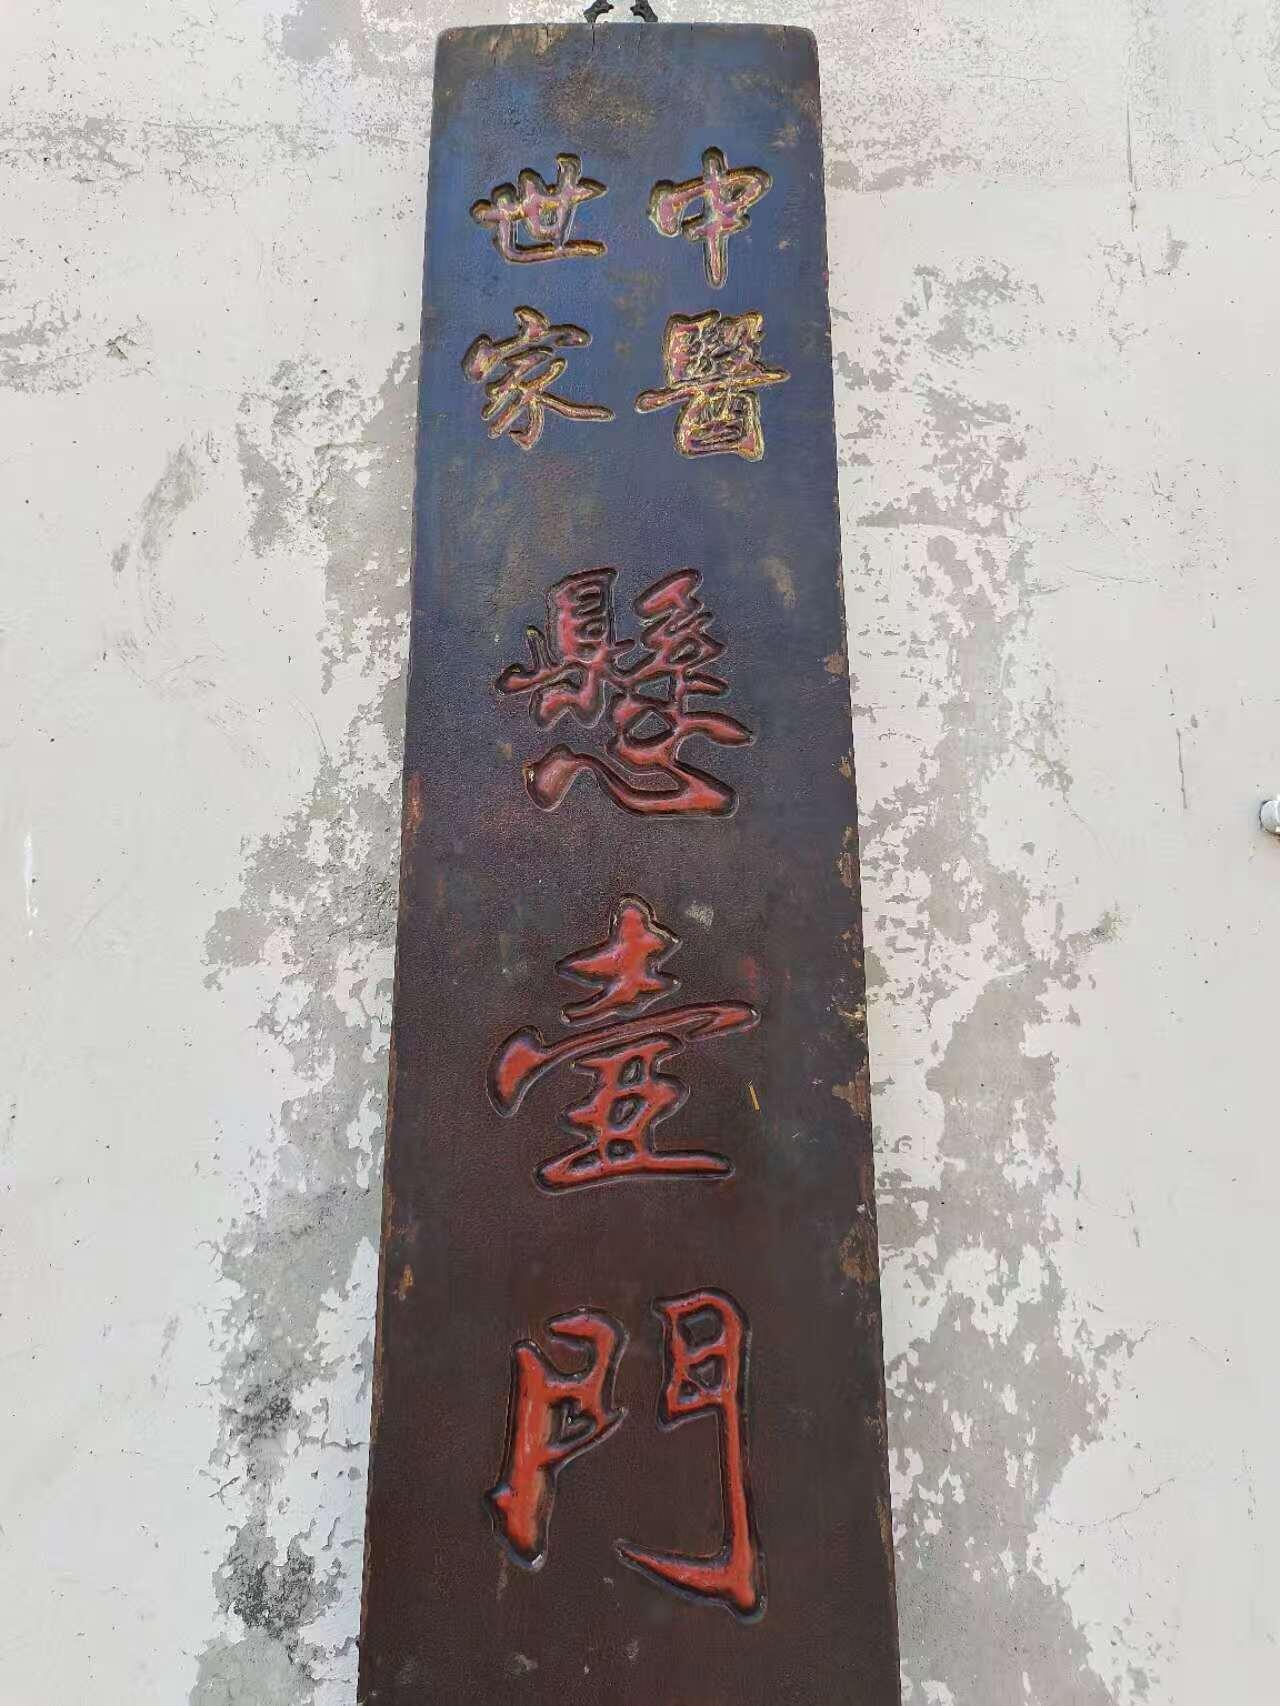 中醫
世家
懸壺門